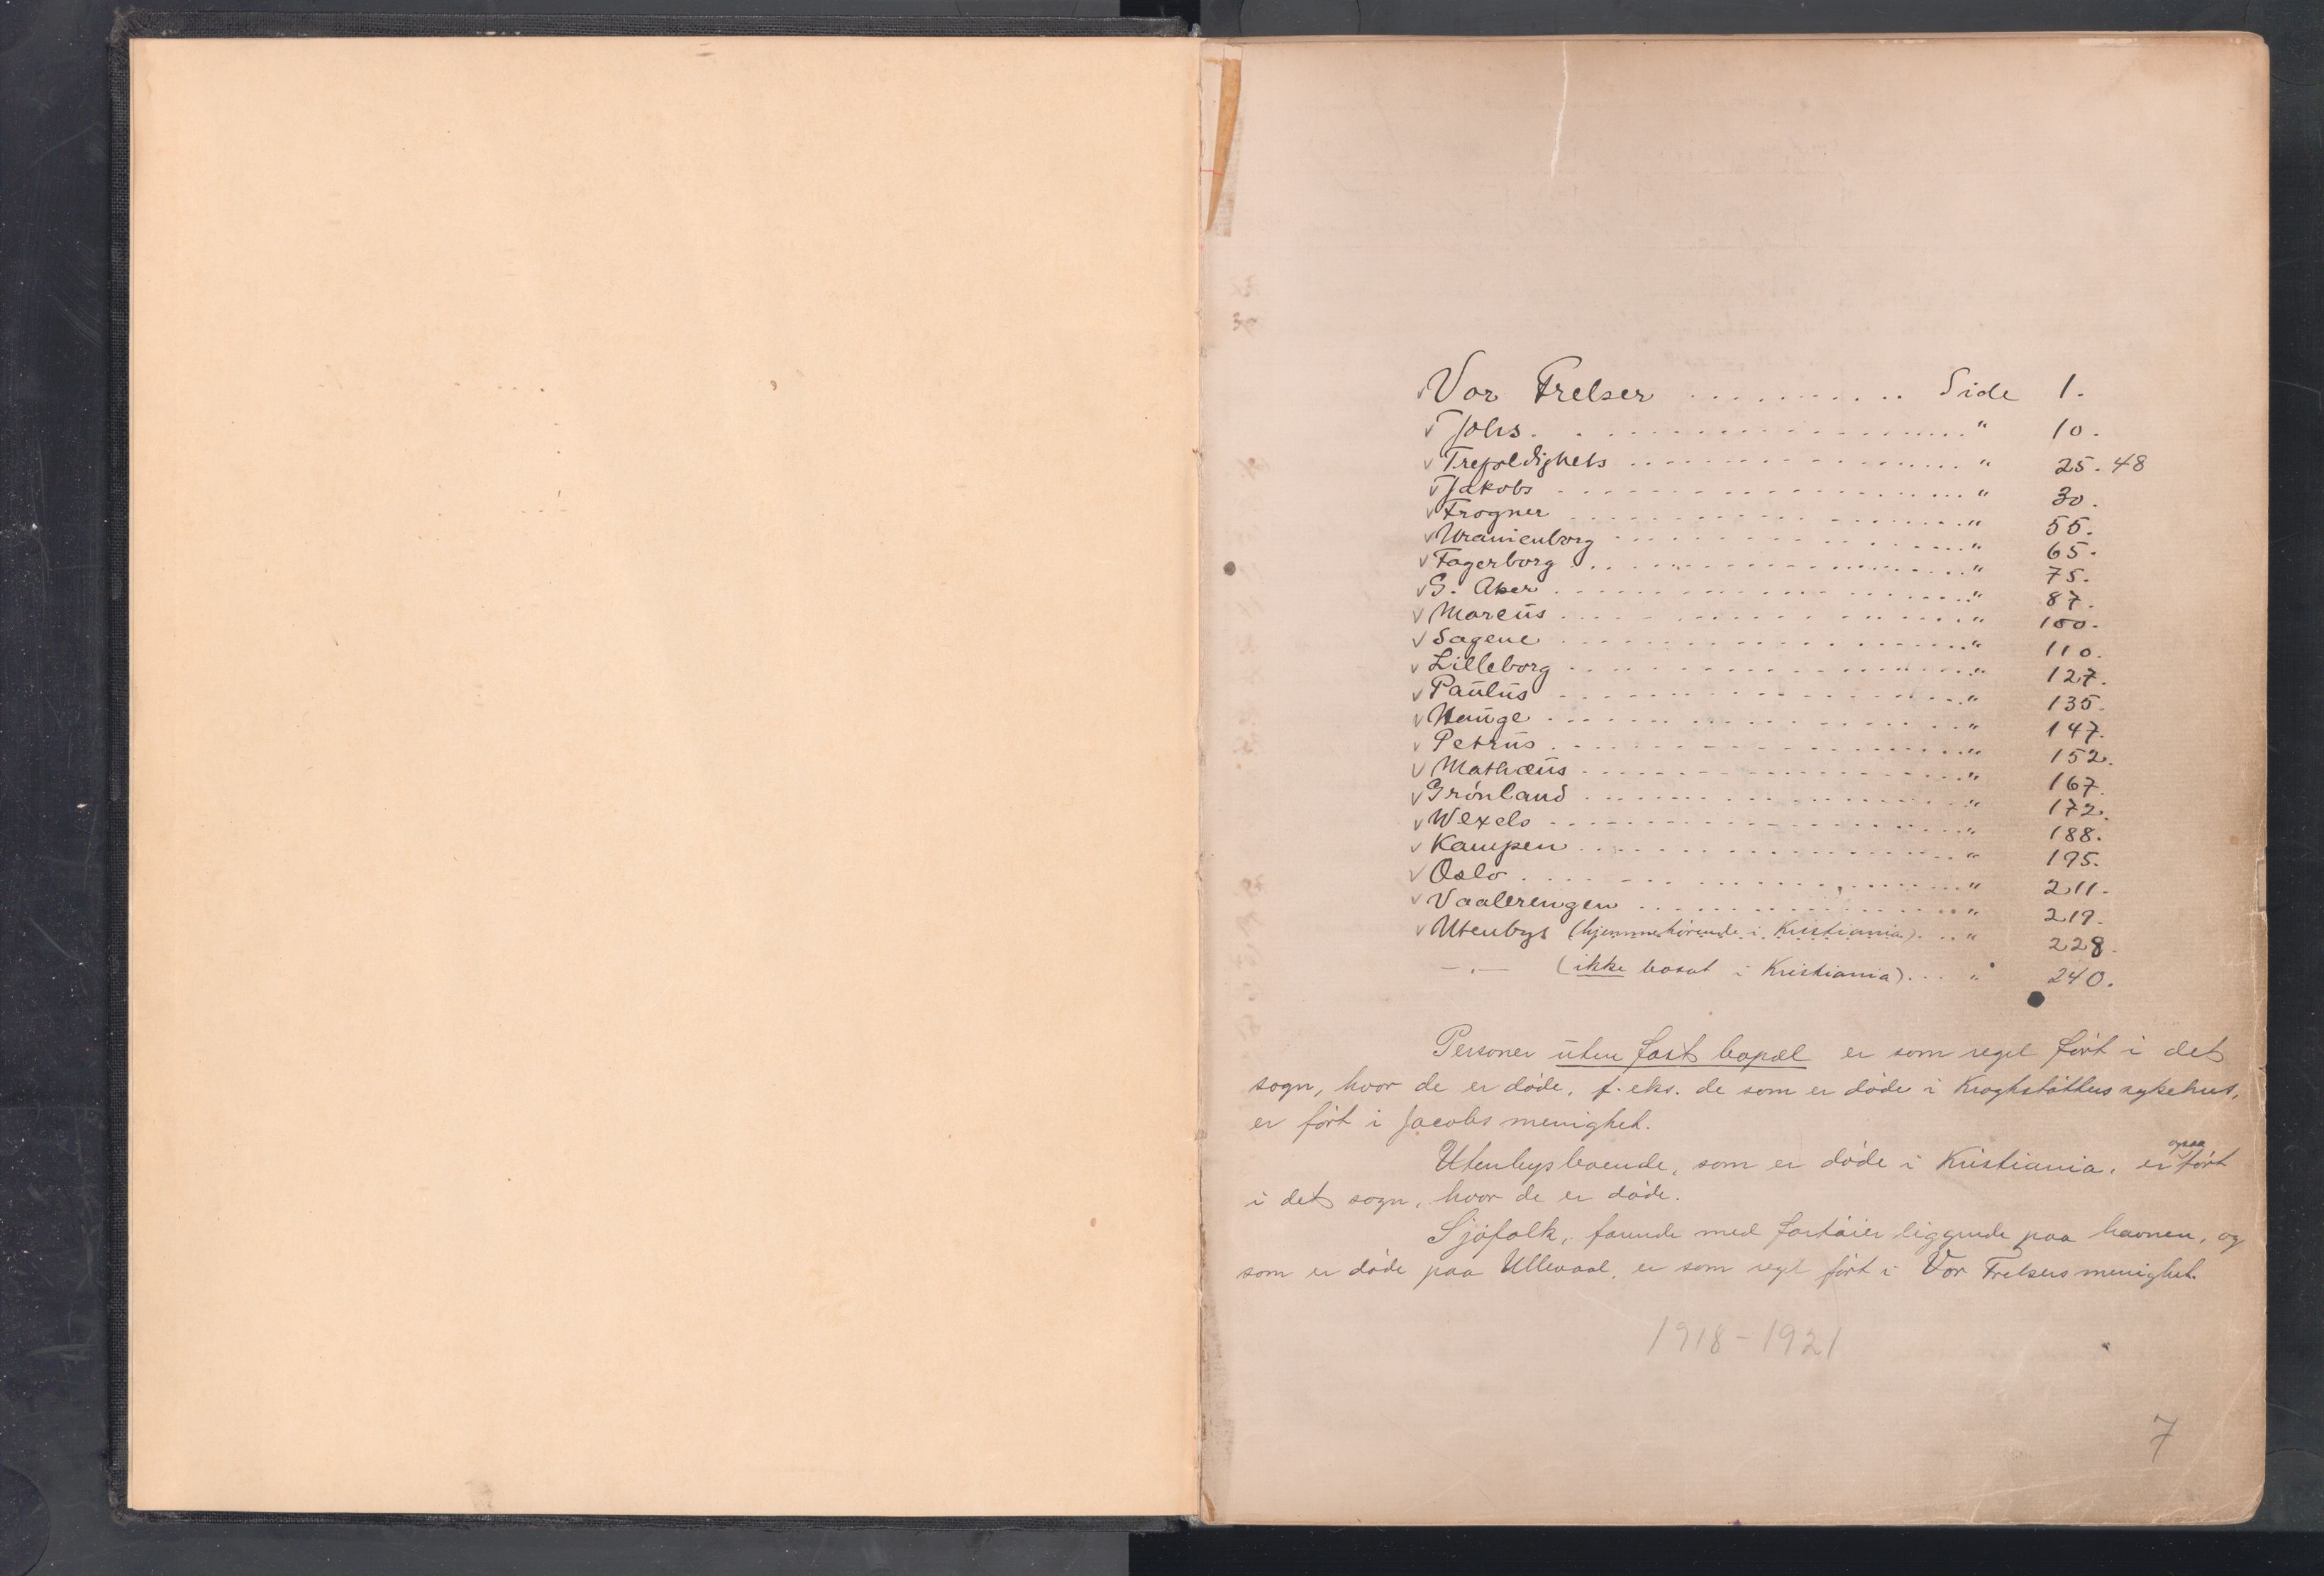 ✓ Vor Frelser .......... Side 1.
✓ Johs. .......... " 10.
✓ Trefoldighets .......... " 25. 48
✓ Jakobs .......... " 30.
✓ Frogner .......... " 55.
✓ Uranienborg .......... " 65.
✓ Fagerborg .......... " 75.
✓ G. Aker .......... " 87.
✓ Marcus .......... " 100.
✓ Sagene .......... " 110.
✓ Lilleborg .......... " 127.
✓ Paulus .......... " 135.
✓ Hauge .......... " 147.
✓ Petrus .......... " 152.
✓ Mathæus .......... " 167.
✓ Grönland .......... " 172.
✓ Wexels .......... " 188.
✓ Kampen .......... " 195.
✓ Oslo .......... " 211.
✓ Vaalerengen .......... " 219.
✓ Utenbys (hjemmehörende i Kristiania) ... " 228.
—"— (ikke bosat i Kristiania) ... " 240.
Personer uten fast bopæl er som regel fört i det
sogn, hvor de er döde, f. eks. de som er döde i Kroghstöttens sykehus,
er fört i Jacobs menighet.
Utenbysboende, som er döde i Kristiania, er ogsaa fört
i det sogn, hvor de er döde.
Sjöfolk, farende med fartöier liggende paa havnen, og
som er döde paa Ullevaal, er som regel fört i Vor Frelsers menighet.
1918-1921
7